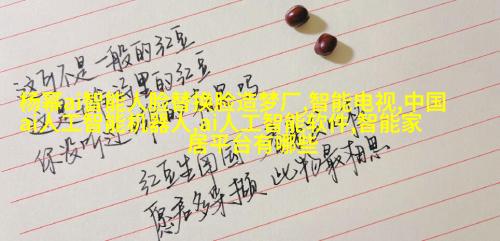 这可不是一般的红豆
这里的红豆
杨幂ai智能人脸替换脸造梦厂,智能电视,中国
ai人工智能机器人,ai人工智能软件,智能家
居平台有哪些
你没听过 吗
红豆生南国
愿君多采撷 此物最相思